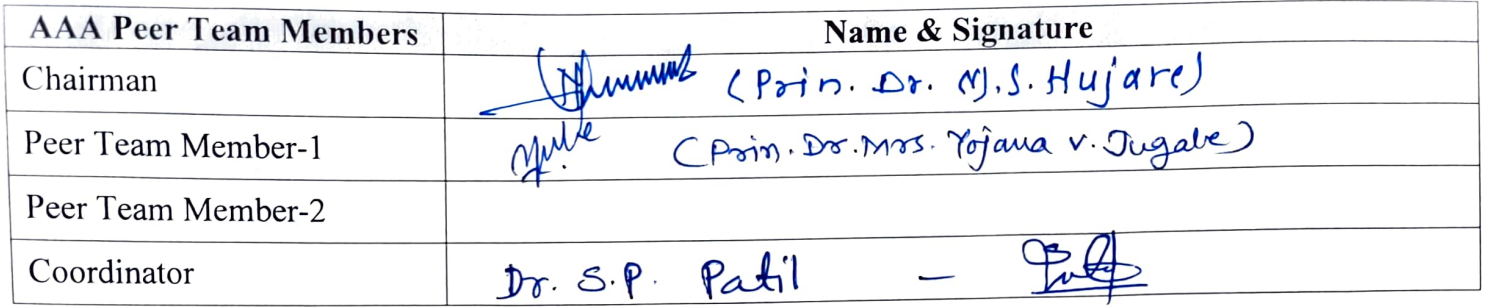 AAA Peer Team Members Name & Signature
Chairman (Prin. Dr. N.S. Hujare)
Peer Team Member-1 (Prin. Dr. Mrs. Yojana V. Jugale)
Peer Team Member-2
Coordinator Dr. S.P. Patil –